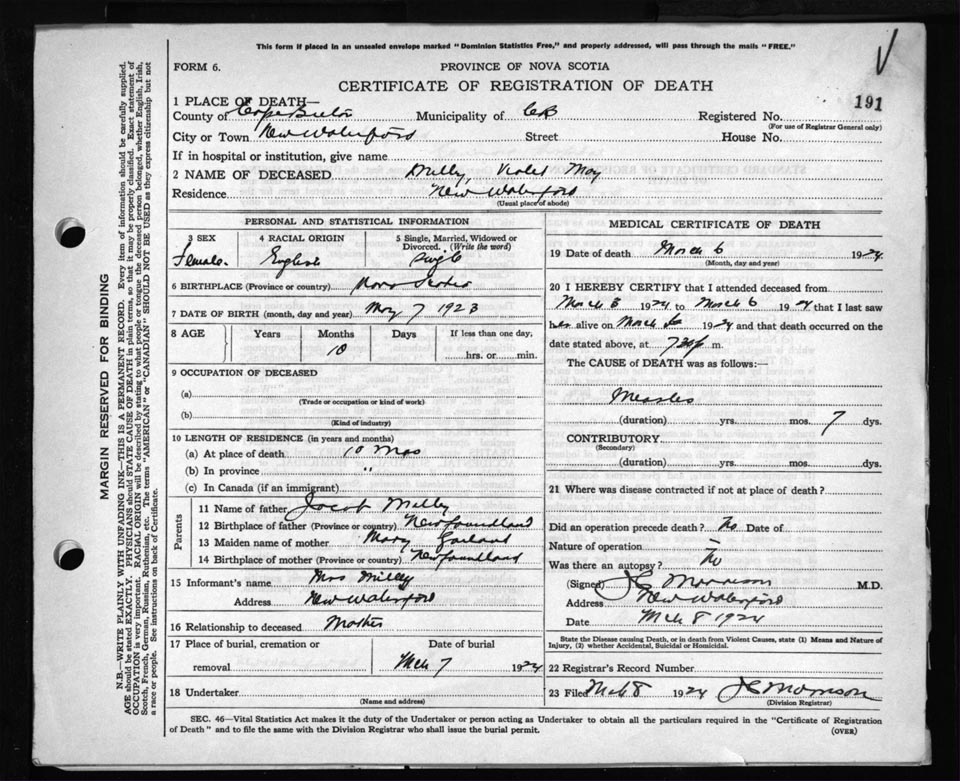 This form if placed in an unsealed envelope marked "Dominion Statistics Free," and properly addressed, will pass through the mails "FREE."
FORM 6.
PROVINCE OF NOVA SCOTIA
CERTIFICATE OF REGISTRATION OF DEATH
191
1 PLACE OF DEATH—
County of Cape Breton Municipality of CB Registered No.
(For use of Registrar General only)
City or Town New Waterford Street House No.
If in hospital or institution, give name
2 NAME OF DECEASED Milly, Violet May
Residence New Waterford
(Usual place of abode)
PERSONAL AND STATISTICAL INFORMATION
3 SEX 4 RACIAL ORIGIN 5 Single, Married, Widowed or Divorced. (Write the word)
Female. English Single
6 BIRTHPLACE (Province or country) Nova Scotia
7 DATE OF BIRTH (month, day and year) May 7 1923
8 AGE Years Months Days If less than one day,
10 hrs. or min.
9 OCCUPATION OF DECEASED
(a)
(Trade or occupation or kind of work)
(b)
(Kind of industry)
10 LENGTH OF RESIDENCE (in years and months)
(a) At place of death 10 mos
(b) In province "
(c) In Canada (if an immigrant)
Parents
11 Name of father Jacob Milley
12 Birthplace of father (Province or country) Newfoundland
13 Maiden name of mother Mary Garland
14 Birthplace of mother (Province or country) Newfoundland
15 Informant's name Mrs Milley
Address New Waterford
16 Relationship to deceased Mother
17 Place of burial, cremation or removal Date of burial
Mch 7 1924
18 Undertaker
(Name and address)
MEDICAL CERTIFICATE OF DEATH
19 Date of death March 6 1924
(Month, day and year)
20 I HEREBY CERTIFY that I attended deceased from
March 3 1924 to March 6 1924 that I last saw
alive on March 6 1924 and that death occurred on the
date stated above, at 730p m.
The CAUSE OF DEATH was as follows:—
Measles
(duration) yrs. mos. 7 dys.
CONTRIBUTORY
(Secondary)
(duration) yrs. mos. dys.
21 Where was disease contracted if not at place of death?
Did an operation precede death? No Date of
Nature of operation
Was there an autopsy? No
(Signed) Morrison M.D.
Address New Waterford
Date Mch 8 1924
State the Disease causing Death, or in death from Violent Causes, state (1) Means and Nature of Injury, (2) whether Accidental, Suicidal or Homicidal.
22 Registrar's Record Number
23 Filed Mch 8 1924 Morrison
(Division Registrar)
SEC. 46—Vital Statistics Act makes it the duty of the Undertaker or person acting as Undertaker to obtain all the particulars required in the "Certificate of Registration
of Death" and to file the same with the Division Registrar who shall issue the burial permit.
(OVER)
MARGIN RESERVED FOR BINDING
N.B.—WRITE PLAINLY WITH UNFADING INK—THIS IS A PERMANENT RECORD. Every item of information should be carefully supplied.
AGE should be stated EXACTLY. PHYSICIANS should STATE CAUSE OF DEATH in plain terms, so that it may be properly classified. Exact statement of
OCCUPATION is very important. RACIAL ORIGIN will be described by stating to what people or tongue the deceased person belonged, whether English, Irish,
Scotch, French, German, Russian, Ruthenian, etc. The terms "AMERICAN" or "CANADIAN" SHOULD NOT BE USED as they express citizenship but not
a race or people. See instructions on back of Certificate.